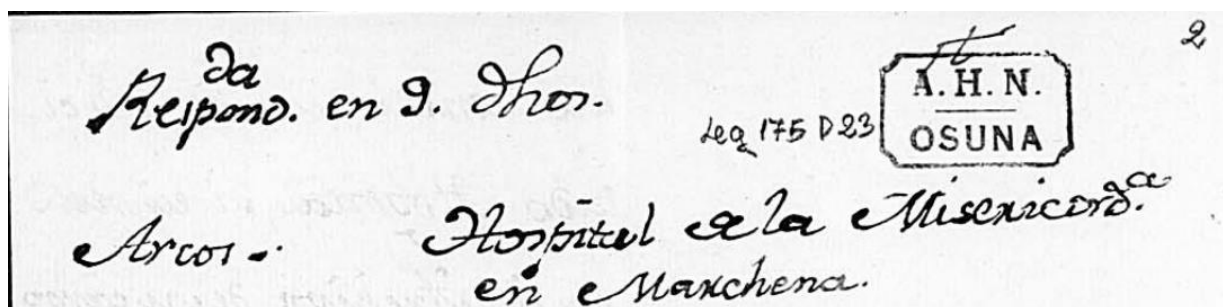 2
Respond.da en 9. dhos.
A.H.N.
OSUNA
Leg 175 D 23
Arcos.
Hospital de la Misericord.a
en Marchena.